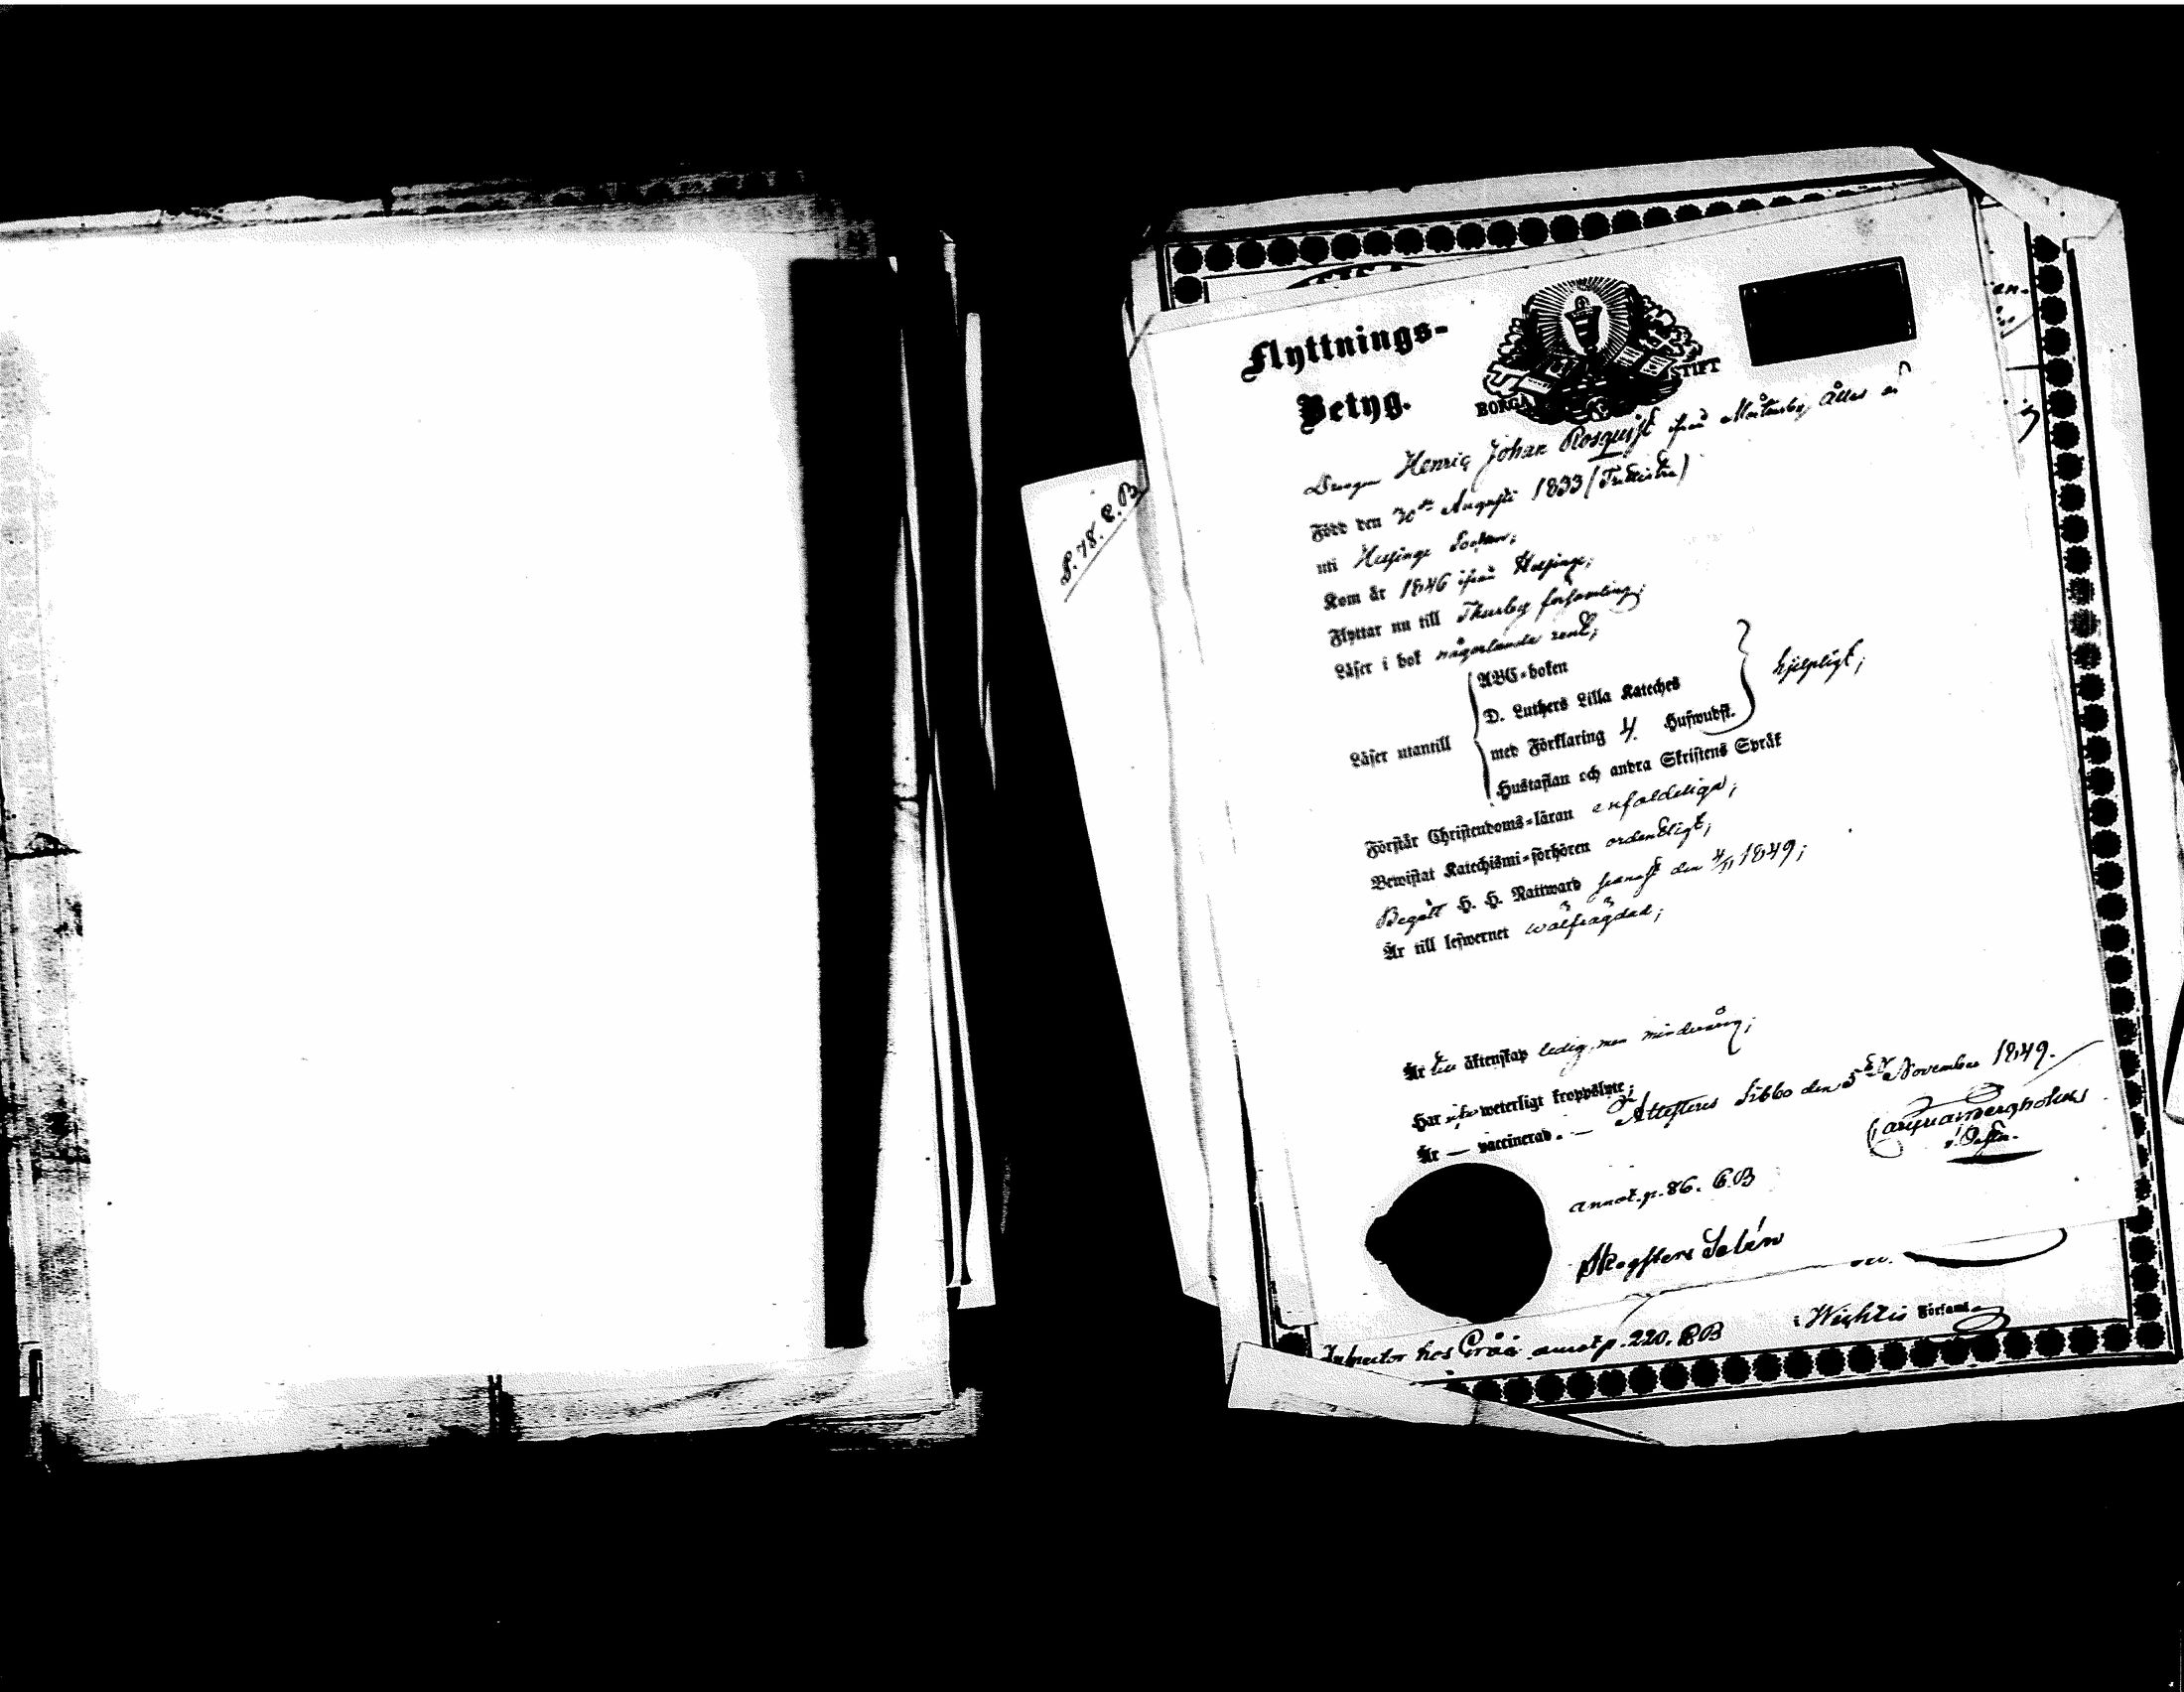 P. 78. C.B
Flyttnings-
Betyg.
BORGÅ STIFT
Drengen Henric Johan Rosquist ifrån Mårtensby Alles är
Född den 30de Augusti 1833
uti Helsinge Sochn;
Kom år 1846 ifrån Helsinge;
Flyttar nu till Thusby församling;
Läser i bok någorlunda rent;
ABC-boken
D. Luthers Lilla Kateches
Läser utantill med Förklaring 4. Hufwudst. hjelpligt;
Hustaflan och andra Skriftens Språk
Förstår Christendoms-läran enfaldeliga;
Bewistat Katechismi-förhören ordentligt;
Begått H. H. Nattward senast den 4/11 1849;
Är till lefwernet wälfrägdad;
Är till äktenskap ledig, men minderårig;
Har icke weterligt kroppslyte;
Är — vaccinerad. — Attesteras Sibbo den 5te November 1849.
annot. p. 86. C.B
Skogsters Salén
i Wichtis Församl.
Inspector hos Gråå annot p. 220. C.B